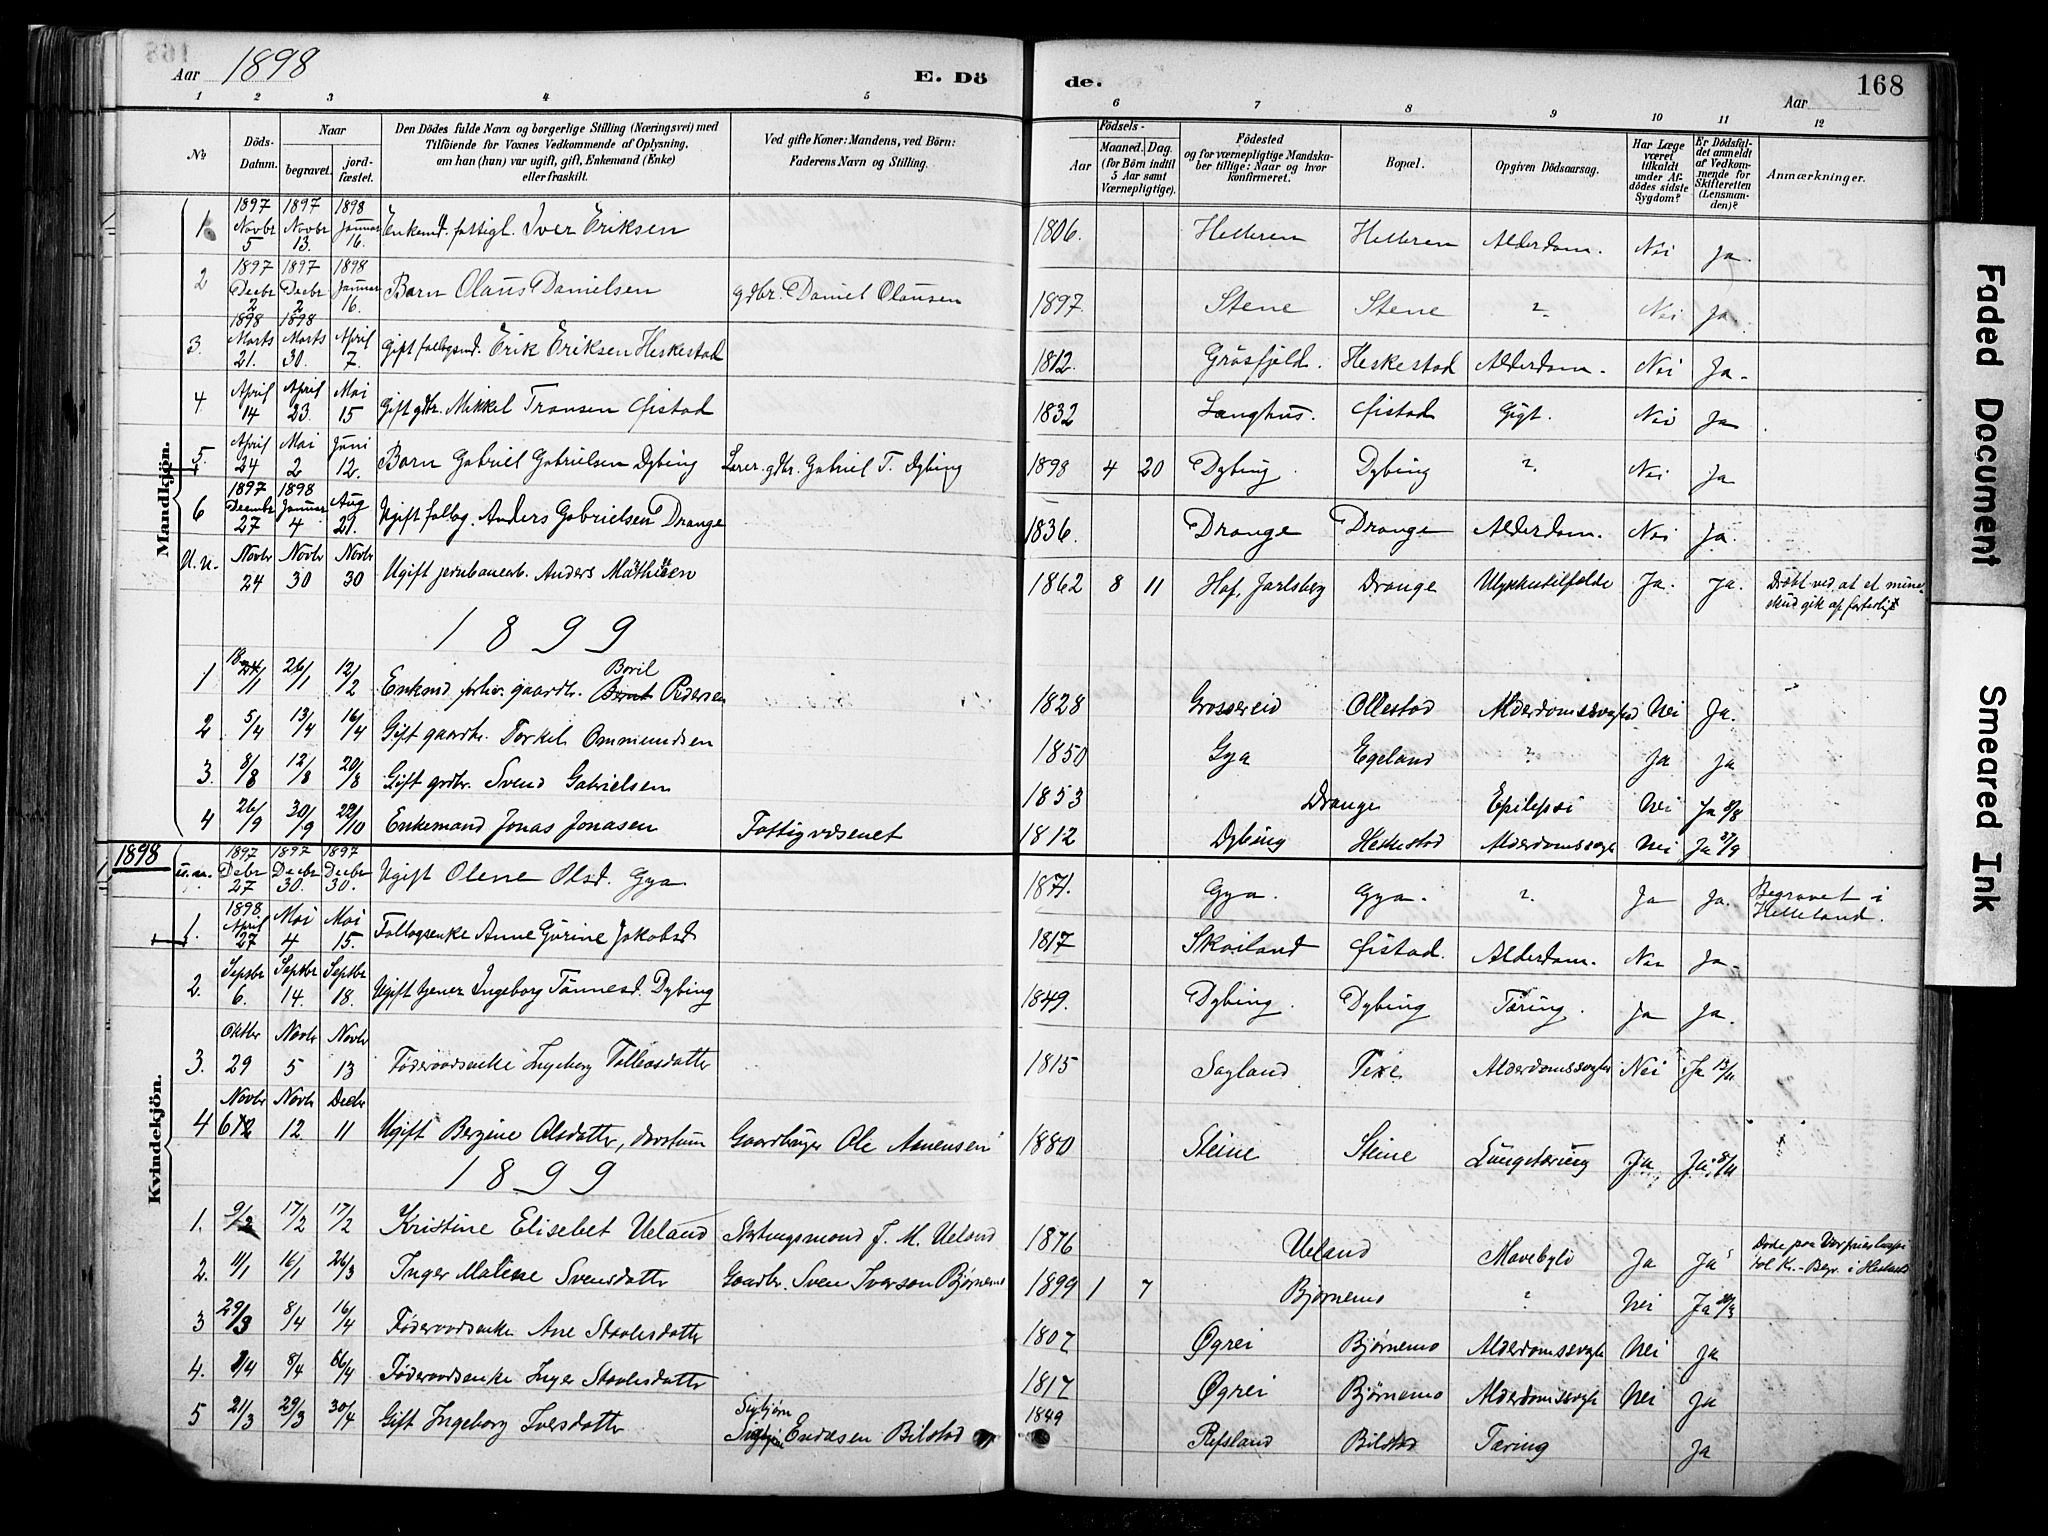 Aar 1898 E. Dö de. Aar 168
1 2 3 4 5 6 7 8 9 10 11 12
No. Döds-Datum. Naar begravet. jordfæstet. Den Dödes fulde Navn og borgerlige Stilling (Næringsvei) med Tilföiende for Voxnes Vedkommende af Oplysning, om han (hun) var ugift, gift, Enkemand (Enke) eller fraskilt. Ved gifte Koner: Mandens, ved Börn: Faderens Navn og Stilling. Födsels- Aar Maaned. Dag. (for Börn indtil 5 Aar samt Værnepligtige). Födested og for værnepligtige Mandskaber tillige: Naar og hvor konfirmeret. Bopæl. Opgiven Dödsaarsag. Har Læge været tilkaldt under Afdödes sidste Sygdom? Er Dödsfaldet anmeldt af Vedkommende for Skifteretten (Lensmanden)? Anmærkninger.
Mandkjön.
1 1897 Novbr 5 1897 Novbr 13. 1898 Januar 16. Enkemd. fattigl. Iver Eriksen 1806. Helleren Helleren Alderdom. Nei Ja.
2 1897 Decbr 2 1897 Decbr 2 1898 Januar 16. Barn Olaus Danielsen gdbr. Daniel Olausen 1897. Stene Stene ? Nei Ja
3. 1898 Marts 21. 1898 Marts 30. April 7. Gift follogsmd. Erik Eriksen Heskestad 1812. Gråsfjeld. Heskestad Alderdom. Nei Ja.
4 April 14 April 23 Mai 15 Gift gdbr. Mikkel Tronsen Øistad 1832 Langhus. Øistad Gigt. Nei Ja
5. April 24 Mai 2 Juni 12. Barn Gabriel Gabrielsen Dybing Lærer. gdbr. Gabriel T. Dybing 1898 4 20 Dybing. Dybing ? Nei Ja
6 1897 Decembr 27 1898 Januar 4 Aug 21. Ugift follog. Anders Gabrielsen Drange 1836. Drange Drange Alderdom. Nei Ja.
U. n. Novbr 24 Novbr 30 Novbr 30 Ugift jernbanearb. Anders Mathisen 1862 8 11 Hof, Jarlsberg Drange Ulykkestilfælde Ja. Ja. Dræbt ved, at et mineskud gik af fortidlig
1899
1 18/1 26/1 12/2 Enkemd forhv. gaardbr. Boril Pedersen 1828 Grossereid Ollestad Alderdomssvaghed Nei Ja.
2 5/4 13/4 16/4 Gift gaardbr. Torkel Ommundsen 1850 Gya Egeland ? Ja Ja
3. 8/8 12/8 20/8 Gift grdbr. Svend Gabrielsen 1853 Drange Epilepsi Nei Ja 8/8
4 26/9 30/9 22/10 Enkemand Jonas Jonasen Fattigvæsenet 1812 Dybing Heskestad Alderdomssvagh Nei Ja 27/9
Kvindekjön.
1898
u.n. 1897 Debr 27 1897 Decbr 30. 1897 Decbr 30. Ugift Olene Olsd. Gya 1871. Gya. Gya. ? Ja Ja. Begravet i Helleland.
1. 1898. April 27 Mai 4 Mai 15. Follogsenke Anne Gurine Jakobsd 1817 Skoiland Øistad. Alderdom. Nei Ja.
2. Septbr 6. Septbr 14. Septbr 18. Ugift tjener Ingeborg Tønnesd. Dybing 1849. Dybing. Dybing Tæring. Ja Ja.
3. Oktbr 29 Novbr 5 Novbr 13 Føderaadsenke Ingeborg Tolleosdatter 1815 Sagland Tixe Alderdomssvaghed Nei Ja 13/11
4 Novbr 6 Novbr 12 Decbr 11 Ugift Bergine Olsdatter, Gaardbruger Ole Asmensen 1880 Steine Steine Lungetæring Ja, Ja, 8/11
1899
1. 9/2 17/2 17/2 Kristine Elisebet Ueland Stortingsmand J. M. Ueland 1876 Ueland Mavebyld Ja Ja Døde paa Vorfrueshospital Kr. - Begr. i Heskestad
2. 11/1 16/1 26/3 Inger Maline Svensdatter Gaardbr. Sven Iverson Bjørnemo 1899 1 7 Bjørnemo ? Nei Ja 20/3
3 29/3 8/4 16/4 Føderaadsenke Ane Staalesdatter 1807 Øgrei Bjørnemo Alderdomssvagh Nei Ja
4. 1/4 8/4 16/4 Føderaadsenke Inger Staalesdatter 1817 Øgrei Bjørnemo Alderdomssvagh Nei Ja
5 21/3 29/3 30/4 Gift Ingeborg Iversdatter Sigbjørn Endresen Bilstad 1849 Refsland Bilstad Tæring Ja
Faded Document
Smeared Ink